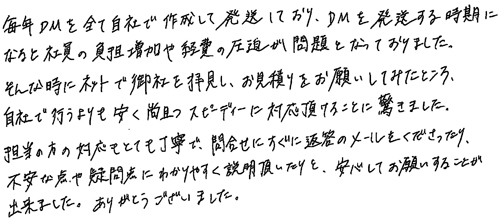 毎年DMを全て自社で作成して発送しており、DMを発送する時期に
なると社員の負担増加や経費の圧迫が問題となっておりました。
そんな時にネットで御社を拝見し、お見積りをお願いしてみたところ、
自社で行うよりも安く尚且つスピーディーに対応頂けることに驚きました。
担当の方の対応もとても丁寧で、問合せにすぐに返答のメールをくださったり、
不安な点や疑問点にわかりやすく説明頂いたりと、安心してお願いすることが
出来ました。ありがとうございました。